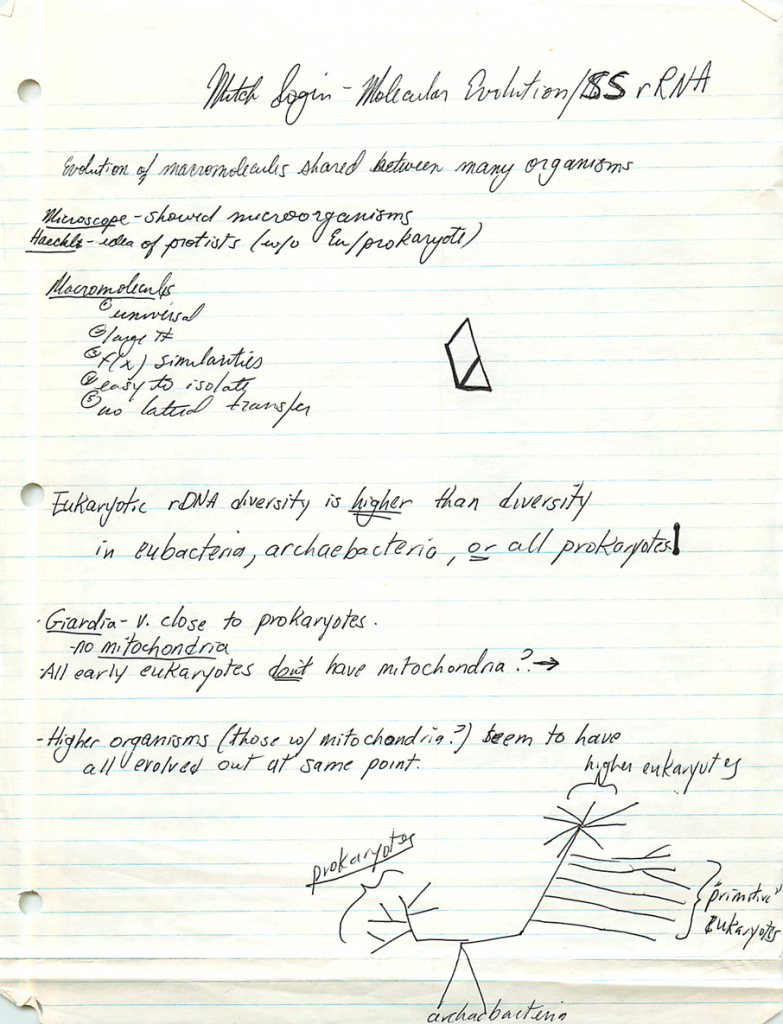 Mitch Sogin - Molecular Evolution/SS rRNA
Evolution of macromolecules shared between many organisms
Microscope - showed microorganisms
Haeckle - idea of protists (w/o Eu/prokaryote)
Macromolecules
① universal
② large #
③ f(x) similarities
④ easy to isolate
⑤ no lateral transfer
Eukaryotic rDNA diversity is higher than diversity
in eubacteria, archaebacteria, or all prokaryotes!
· Giardia - v. close to prokaryotes.
- no mitochondria
· All early eukaryotes don't have mitochondria? →
- Higher organisms (those w/ mitochondria?) seem to have
all evolved out at same point.
higher eukaryotes
prokaryotes
"primitive"
eukaryotes
archaebacteria